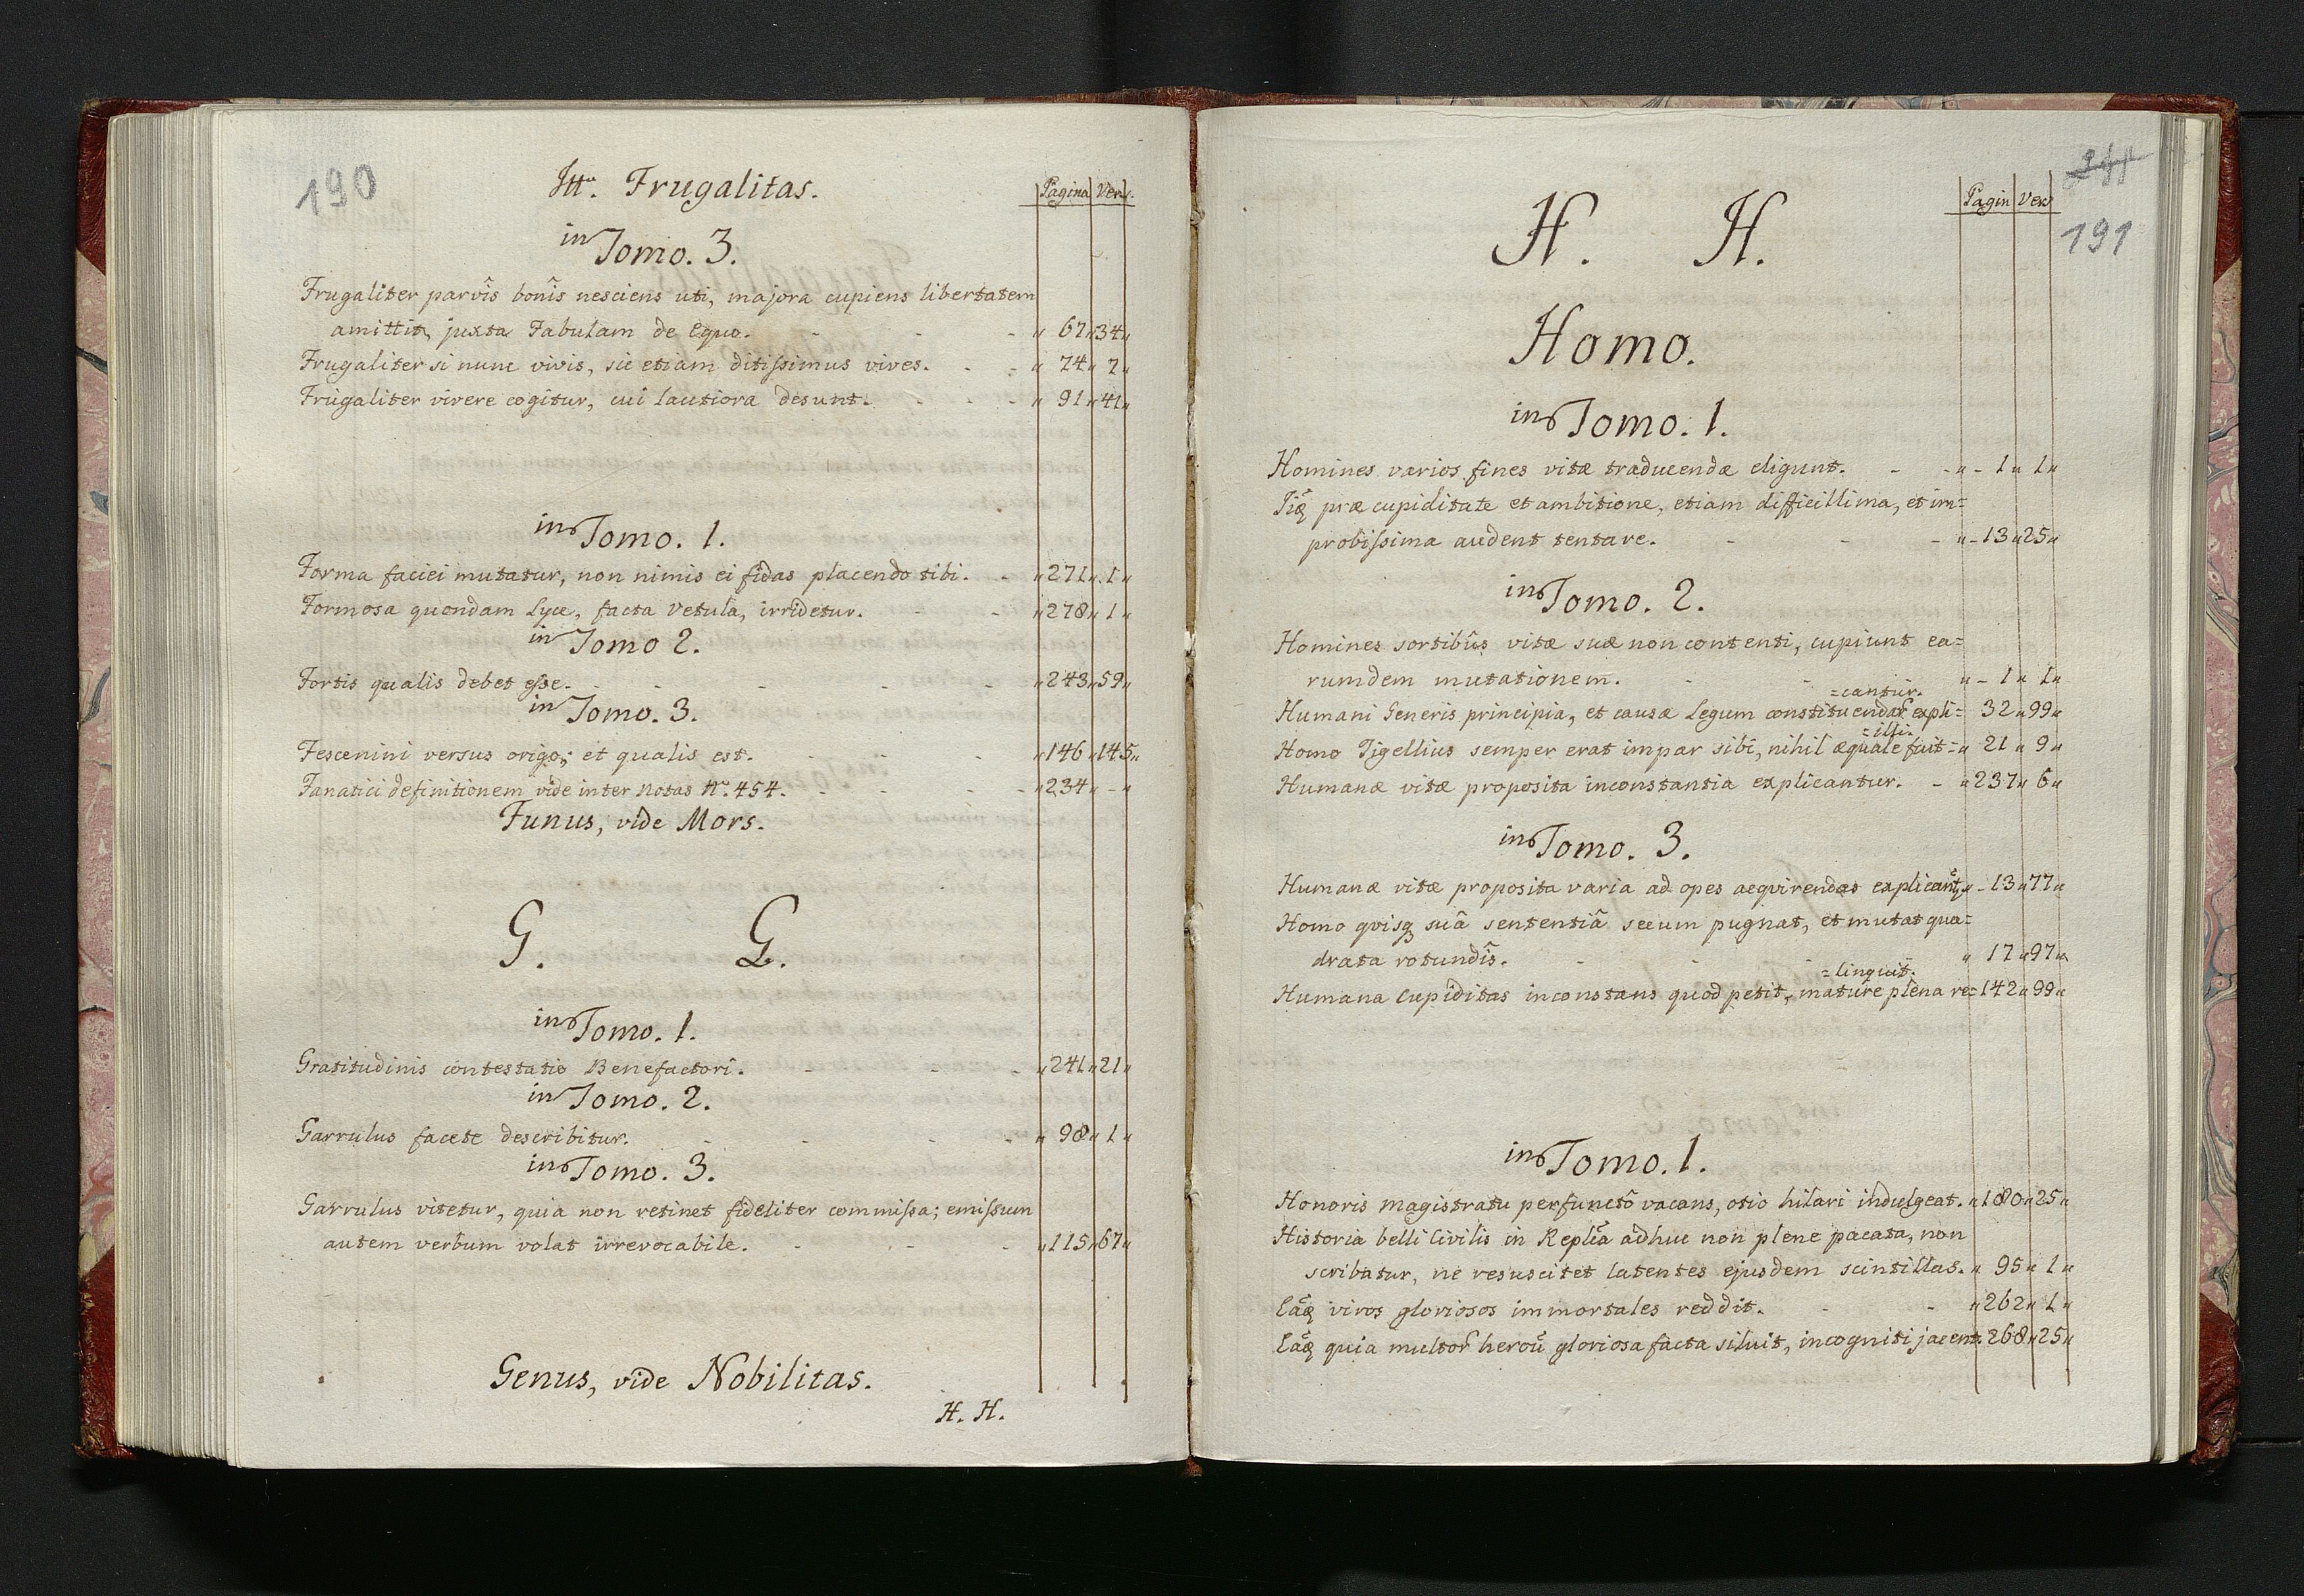 190
Itt. Frugalitas.
Pagina Vers.
in Tomo. 3.
Frugaliter parvîs bonîs nesciens uti, majora cupiens libertatem
amittit, juxta Fabulam de Equo. - - - " 67 " 34 "
Frugaliter si nunc vivis, sic etiam ditissimus vives. - - " 74 " 7 "
Frugaliter vivere cogitur, cui lautiora desunt. - - - " 91 " 41 "
in Tomo. 1.
Forma faciei mutatur, non nimis ei fidas placendo tibi. - " 271 " 1 "
Formosa quondam Lyce, facta Vetula, irridetur. - - " 278 " 1 "
in Tomo 2.
Fortis qualis debet esse. - - - - - " 243 " 59 "
in Tomo. 3.
Fescenini versus origo; et qualis est. - - - " 146 " 145 "
Fanatici definitionem vide inter Notas Nr. 454. - - - - " 234 " - "
Funus, vide Mors.
G. G.
in Tomo. 1.
Gratitudinis contestatio Benefactori. - - - " 241 " 21 "
in Tomo. 2.
Garrulus facete describitur. - - - - " 98 " 1 "
in Tomo. 3.
Garrulus vitetur, quia non retinet fideliter commissa; emissum
autem verbum volat irrevocabile. - - - " 115 " 67 "
Genus, vide Nobilitas.
H. H.
191
Pagin Vers
H. H.
Homo.
in Tomo. 1.
Homines varios fines vitæ traducendæ eligunt. - - " - 1 " 1 "
Iiq præ cupiditate et ambitione, etiam difficillima, et im=
probissima audent tentare. - - - " - 13 " 25 "
in Tomo. 2.
Homines sortibûs vitæ suæ non contenti, cupiunt ea=
rumdem mutationem. - - " - 1 " 1 "
=cantur.
Humani Generis principia, et causæ Legum constituendar expli= 32 " 99 "
=illi.
Homo Tigellius semper erat impar sibi, nihil æquale fuit = " 21 " 9 "
Humanæ vitæ proposita inconstantia explicantur. - " 237 " 6 "
in Tomo. 3.
Humanæ vitæ proposita varia ad opes acqvirendas explicant " - 13 " 77 "
Homo qvisq suâ sententiâ secum pugnat, et mutat qua=
drata rotundîs. - - - " 17 " 97 "
=linquit.
Humana Cupiditas inconstans quod petit, mature plena re= 142 " 99 "
in Tomo. 1.
Honoris magistratu perfunctô vacans, otio hilari indulgeat. " 180 " 25 "
Historia belli Civilis in Replîa adhuc non plene pacata, non
scribatur, ne resuscitet latentes ejusdem scintillas. " 95 " 1 "
Eaq viros gloriosos immortales reddit. - - " 262 " 1 "
Eaq quia multor heroū gloriosa facta siluit, incogniti jacent. 268 " 25 "